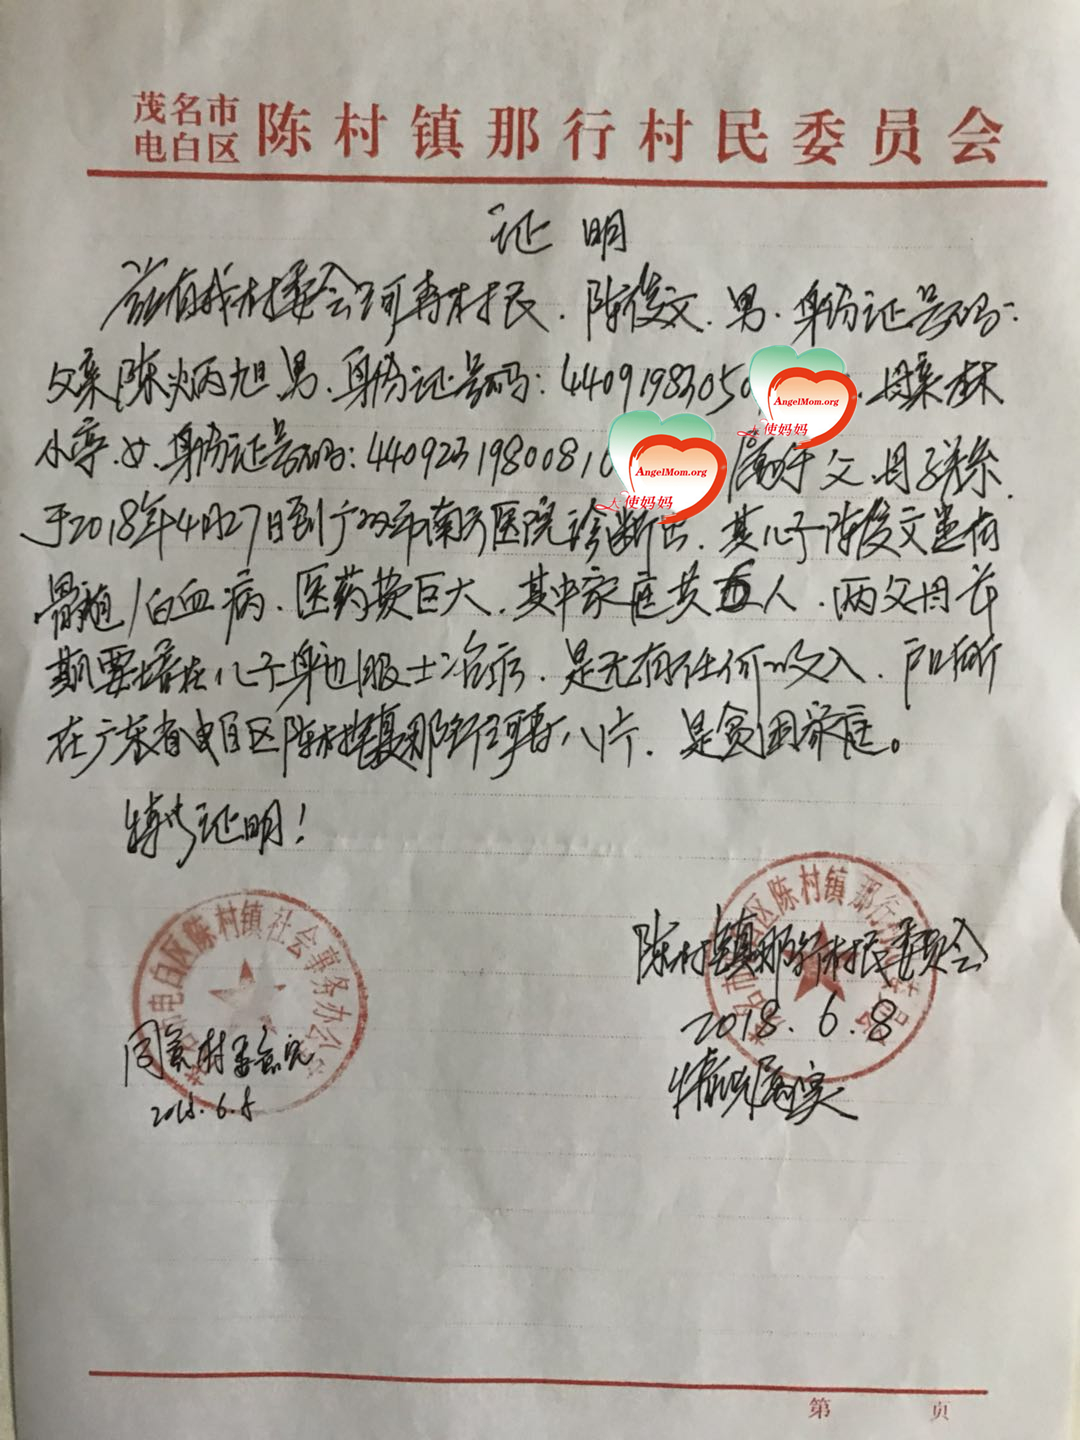 茂名市
电白区 陈村镇那行村民委员会
证明
兹有我村委会河再村民.陈俊文.男.身份证号码:
父亲陈炳旭男.身份证号码:4409198305 .母亲林
小 .女.身份证号码:440923198008 属于父母子关系.
于2018年4月27日到广州市南方医院诊断出.其儿子陈俊文患有
骨髓白血病.医药费巨大.其中家庭共五人.两父母长
期要陪在儿子身边服士治疗.是无有任何收入.户口所
在广东省电白区陈村镇那行河再八片.是贫困家庭。
特此证明!
AngelMom.org
天使妈妈
AngelMom.org
天使妈妈
电白区陈村镇社会事务办公
同意村委意见
2018.6.8
名市 区陈村镇那行
陈村镇那行村民委员会
2018.6.8
情况属实
第 页